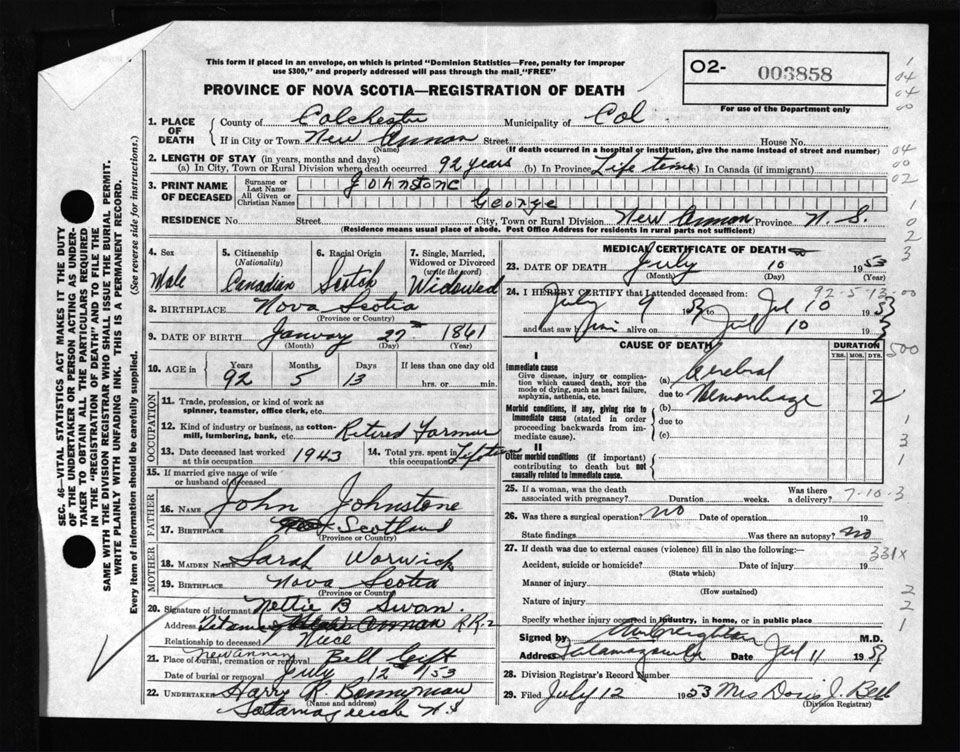 This form if placed in an envelope, on which is printed "Dominion Statistics—Free, penalty for improper
use $300," and properly addressed will pass through the mail "FREE"
O2- 003858
PROVINCE OF NOVA SCOTIA—REGISTRATION OF DEATH
For use of the Department only
1. PLACE OF DEATH
County of Colchester Municipality of Col.
If in City or Town New Annan Street House No.
(Name) (If death occurred in a hospital or institution, give the name instead of street and number)
2. LENGTH OF STAY (in years, months and days)
(a) In City, Town or Rural Division where death occurred 92 years (b) In Province Life time (c) In Canada (if immigrant)
3. PRINT NAME OF DECEASED
Surname or Last Name Johnstone
All Given or Christian Names George
RESIDENCE No. Street City, Town or Rural Division New Annan Province N. S.
(Residence means usual place of abode. Post Office Address for residents in rural parts not sufficient)
4. Sex Male
5. Citizenship (Nationality) Canadian
6. Racial Origin Scotch
7. Single, Married, Widowed or Divorced (write the word) Widowed
8. BIRTHPLACE Nova Scotia
(Province or Country)
9. DATE OF BIRTH January 27th 1861
(Month) (Day) (Year)
10. AGE in Years Months Days If less than one day old
92 5 13 hrs. or min.
OCCUPATION
11. Trade, profession, or kind of work as
spinner, teamster, office clerk, etc.
12. Kind of industry or business, as cotton-
mill, lumbering, bank, etc. Retired Farmer
13. Date deceased last worked at this occupation 1943
14. Total yrs. spent in this occupation Lifetime
15. If married give name of wife
or husband of deceased
FATHER
16. NAME John Johnstone
17. BIRTHPLACE Scotland
(Province or Country)
MOTHER
18. MAIDEN NAME Sarah Warwick
19. BIRTHPLACE Nova Scotia
(Province or Country)
20. Signature of informant Nettie B Swan.
Address Annan RR-2
Relationship to deceased Niece
21. Place of burial, cremation or removal New Annan Bell
Date of burial or removal July 12 /53
22. UNDERTAKER Harry R. Bonnyman
(Name and address)
Tatamagouche N.S
MEDICAL CERTIFICATE OF DEATH
23. DATE OF DEATH July 10 1953
(Month) (Day)
92-5-13-00
24. I HEREBY CERTIFY that I attended deceased from:
July 9 1953 to Jul 10 1953
and last saw him alive on Jul 10 1953
CAUSE OF DEATH DURATION
YRS. MOS. DYS.
I
Immediate cause
Give disease, injury or complication which caused death, NOT the
mode of dying, such as heart failure,
asphyxia, asthenia, etc.
(a) Cerebral
due to Hemorrhage 2
Morbid conditions, if any, giving rise to
immediate cause (stated in order
proceeding backwards from immediate cause).
(b)
due to
(c)
II
Other morbid conditions (if important)
contributing to death but not
causally related to immediate cause.
25. If a woman, was the death associated with pregnancy? Duration weeks. Was there a delivery?
7-10-3
26. Was there a surgical operation? NO Date of operation 19
State findings Was there an autopsy? NO
27. If death was due to external causes (violence) fill in also the following:— 331X
Accident, suicide or homicide? Date 19
(State which)
Manner of injury
(How sustained)
Nature of injury
Specify whether injury occurred in industry, in home, or in public place
Signed by Creighton M.D.
Address Tatamagouche Date Jul 11 1953
28. Division Registrar's Record Number
29. Filed July 12 1953 Mrs Doris J. Bell
(Division Registrar)
SEC. 46—VITAL STATISTICS ACT MAKES IT THE DUTY
OF THE UNDERTAKER OR PERSON ACTING AS UNDER-
TAKER TO OBTAIN ALL THE PARTICULARS REQUIRED
IN THE "REGISTRATION OF DEATH" AND TO FILE THE
SAME WITH THE DIVISION REGISTRAR WHO SHALL ISSUE THE BURIAL PERMIT.
WRITE PLAINLY WITH UNFADING INK. THIS IS A PERMANENT RECORD.
Every item of information should be carefully supplied. (See reverse side for instructions.)
1
04
04
00
04
00
02
1
0
2
3
500
1
1
3
1
2
2
1